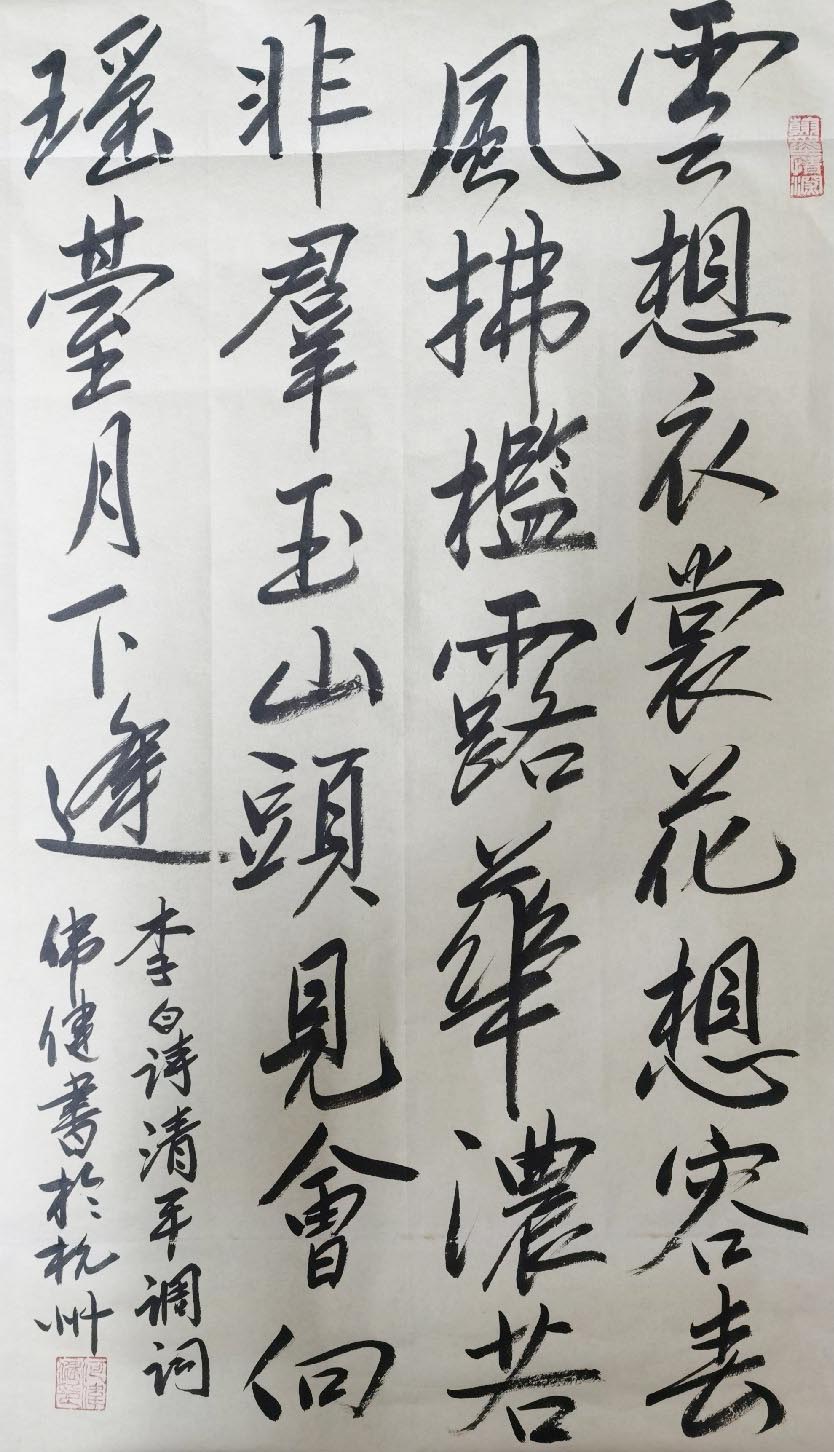 雲想衣裳花想容春
風拂檻露華濃若
非羣玉山頭見會向
瑶臺月下逢
李白诗清平调词
伟健書於杭州